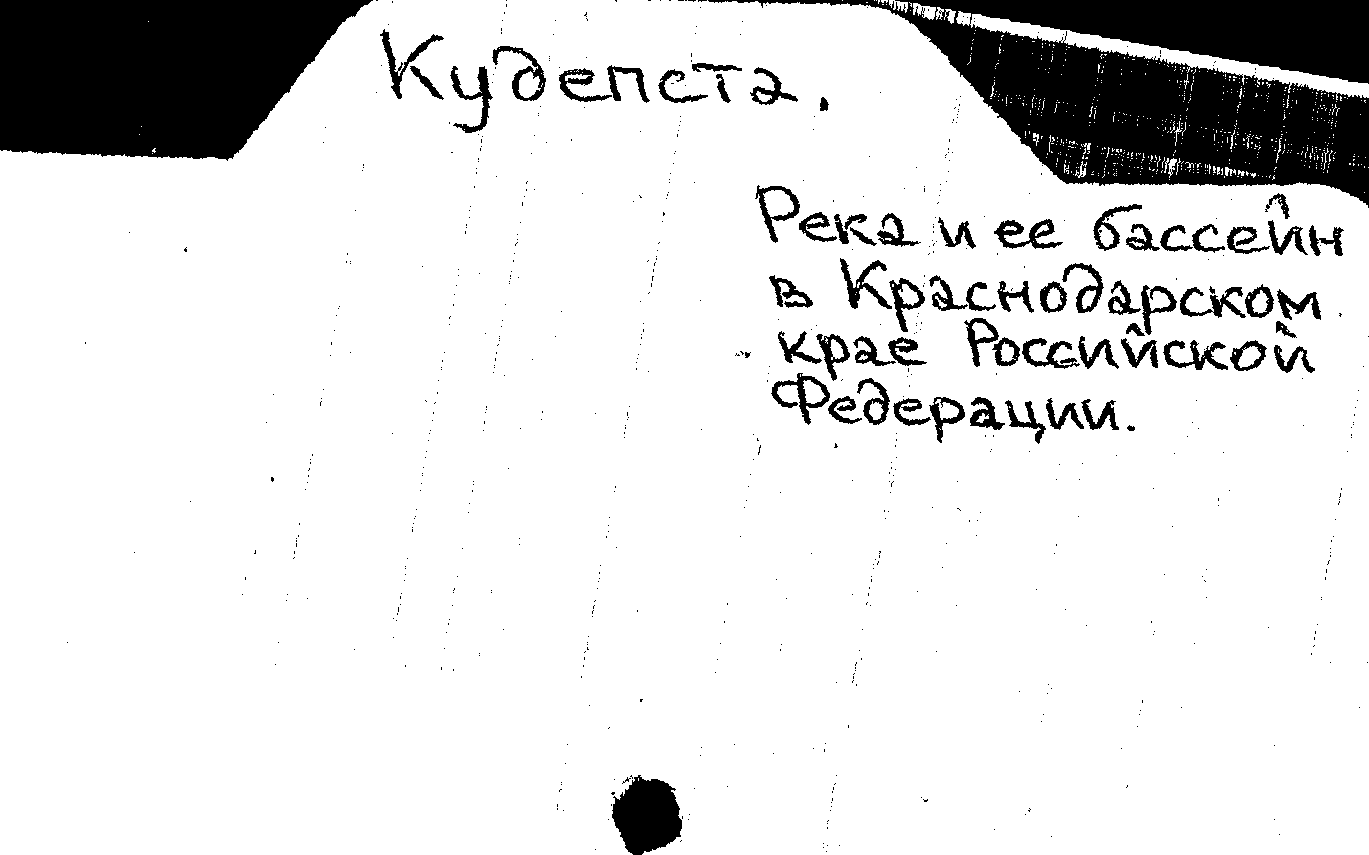 Кудепста.
Река и ее бассейн
в Краснодарском
крае Российской
Федерации.